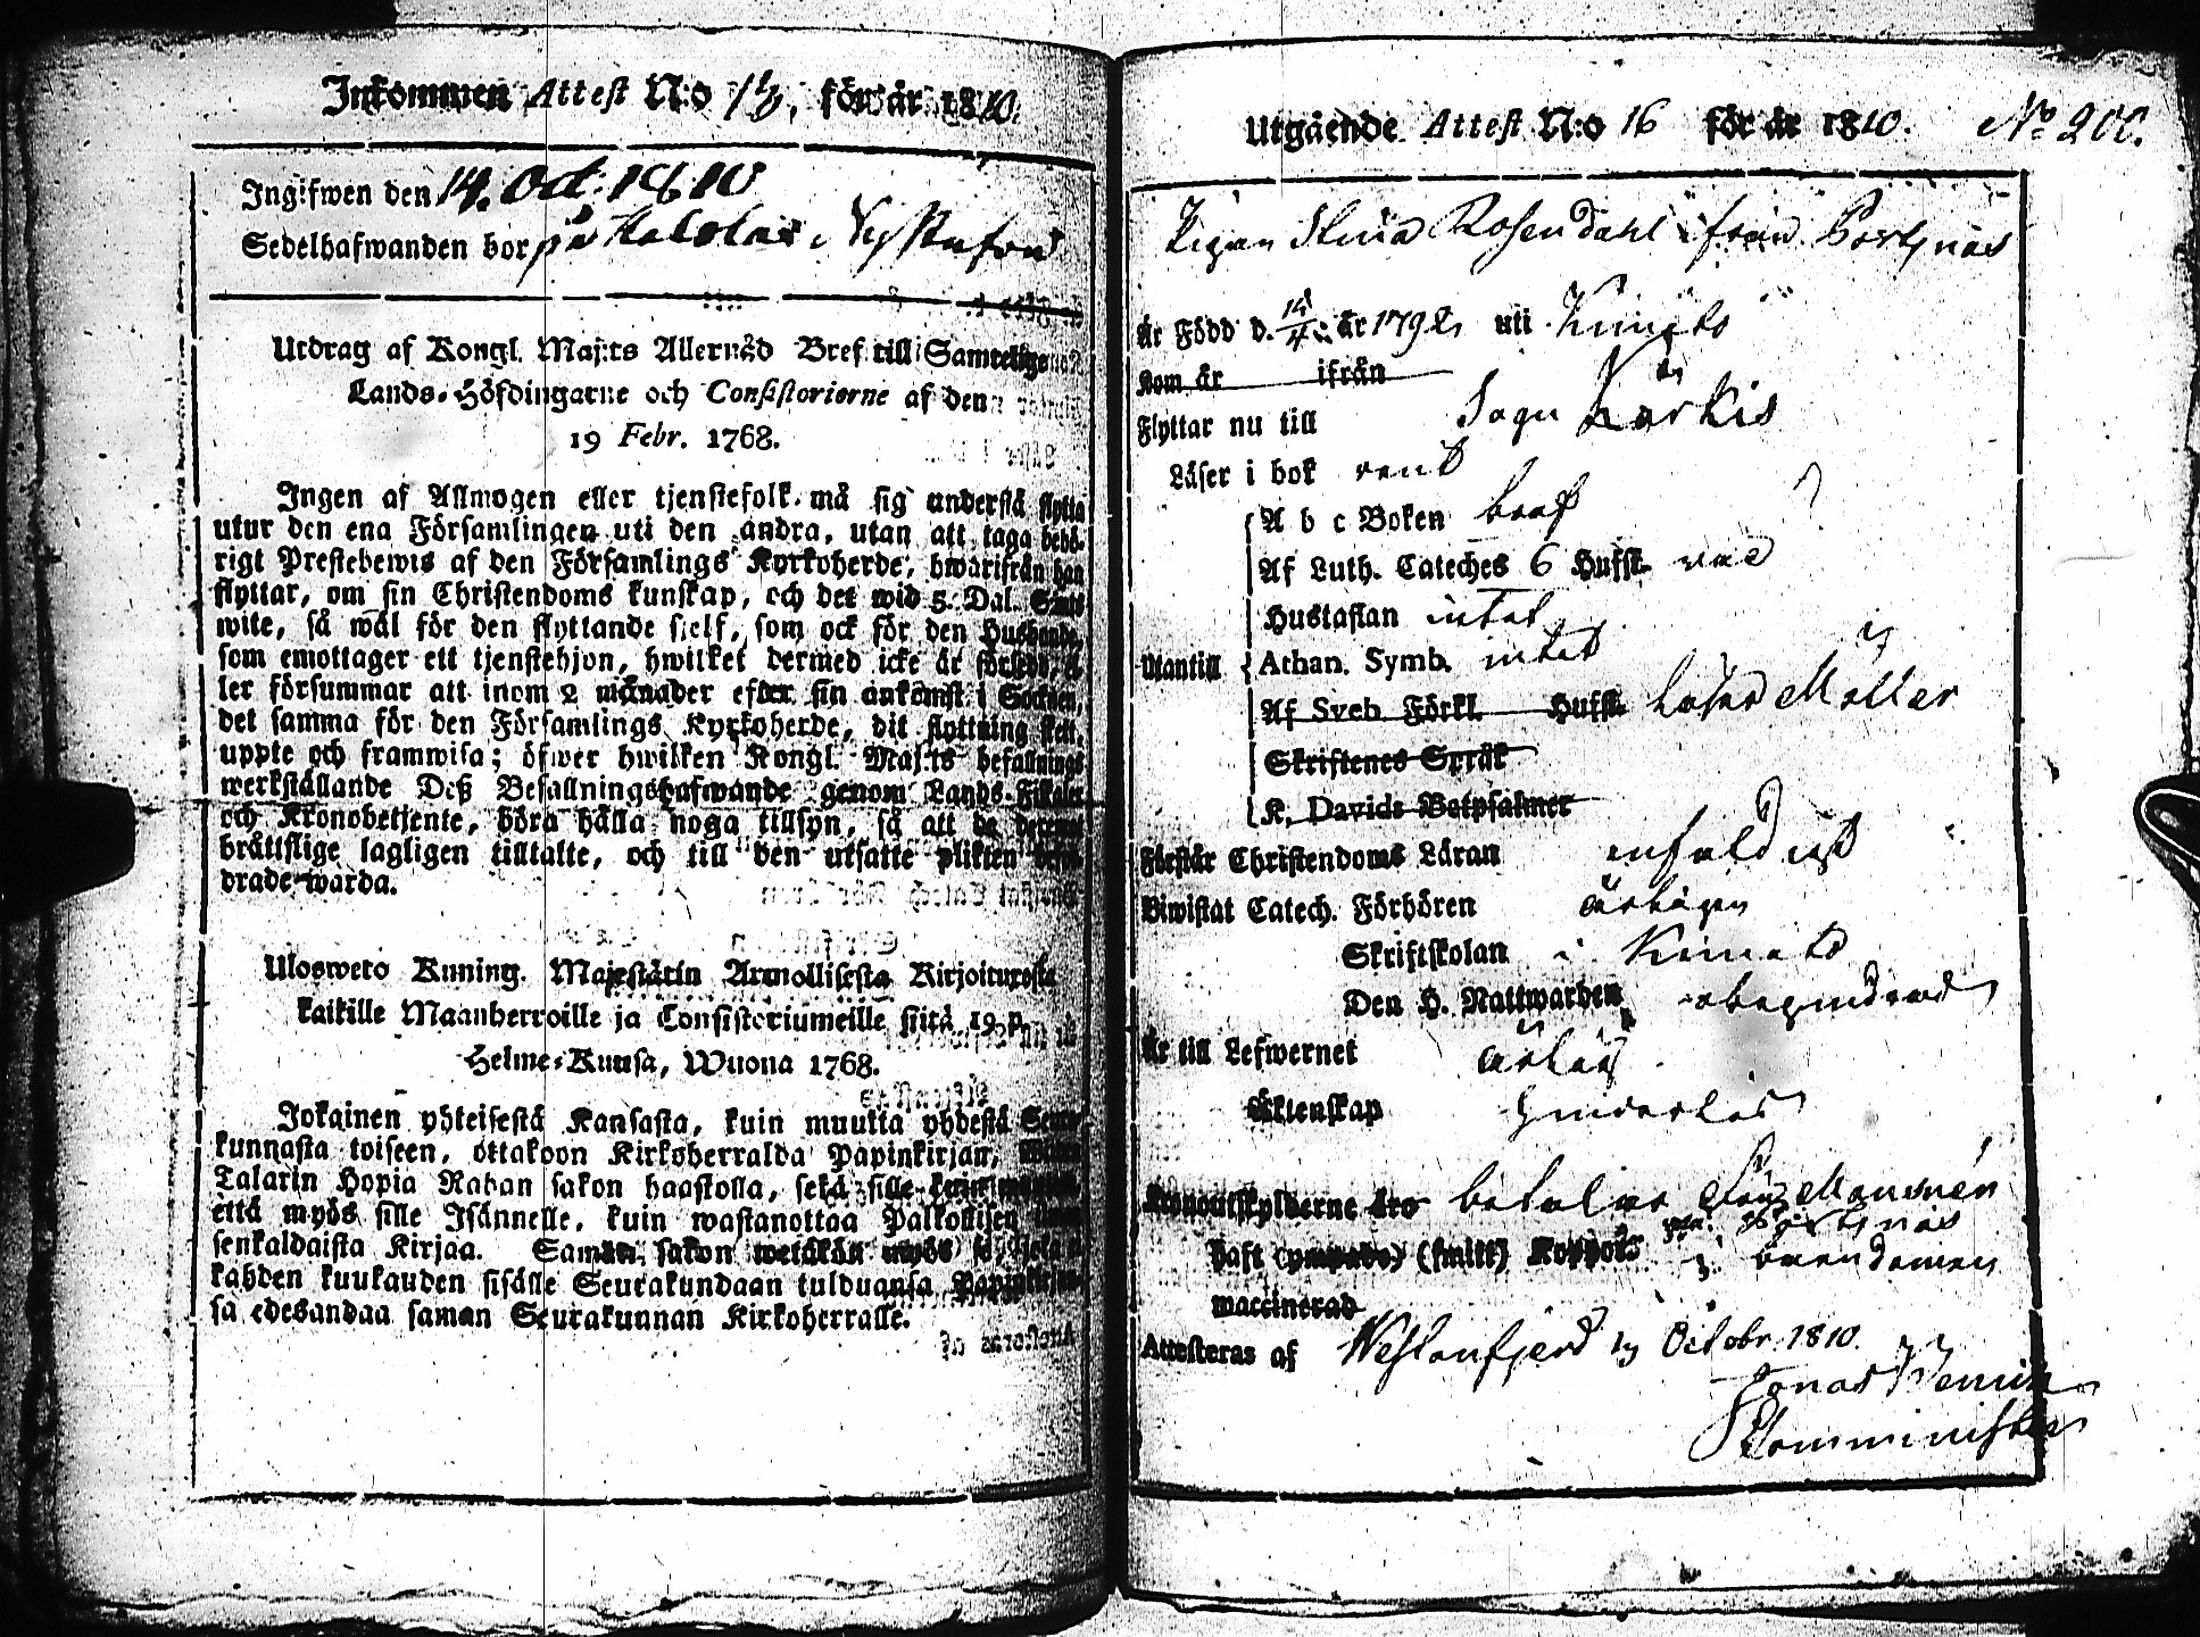 Inkommen Attest N:o 1/3, för år 1810.
Ingifwen den 14. Oct: 1810
Sedelhafwanden bor på
Utdrag af Kongl. Maj:ts Allernåd Bref till Samtelige
Lands-Höfdingarne och Consistorierne af den
19 Febr. 1768.
Ingen af Allmogen eller tjenstefolk må sig understå flytta
utur den ena Församlingen uti den andra, utan att taga behö-
rigt Prestebewis af den Församlings Kyrkoherde, hwarifrån han
flyttar, om sin Christendoms kunskap, och det wid 5. Dal. S:mts
wite, så wäl för den flyttande sjelf, som ock för den Husbonde,
som emottager ett tjenstehjon, hwilket dermed icke är försedt, el-
ler försummar att inom 2 månader efter sin ankomst i Socknen,
det samma för den Församlings Kyrkoherde, dit flyttning skett,
uppte och framwisa; öfwer hwilken Kongl. Maj:ts befallnings
werkställande Deß Befallningshafwande genom Lands-Fiskaler
och Kronobetjente, böra hålla noga tillsyn, så att de deremot
bråttslige lagligen tilltalte, och till den utsatte plikten
drade warda.
Ulosweto Kuning. Majestätin Armollisesta Kirjoituxesta
kaikille Maanherroille ja Consistoriumeille siitä 19 p.
Helme-Kuusa, Wuona 1768.
Jokainen yhteisestä Kansasta, kuin muutta yhdestä Seura-
kunnasta toiseen, ottakoon Kirkoherralda Papinkirjan,
Talarin Hopia Rahan sakon haastolla, sekä sille kuin
että myös sille Isännelle, kuin wastanottaa Palkollisen
senkaldaista Kirjaa. Saman sakon wetäkön myös se, joka ei
kahden kuukauden sisälle Seurakundaan tulduansa Papinkirjan-
sa edesandaa saman Seurakunnan Kirkoherralle.
Utgående Attest N:o 16 för år 1810. No 200.
Pigan Stina Rosendahl ifrån Börtsnäs
Är Född d. 14/4 år 1792 uti Kimito
Kom år ifrån
Flyttar nu till Sagu Karkis
Läser i bok rent
Utantill
A b c Boken braf
Af Luth. Cateches 6 Hufst.
Hustaflan intet
Athan. Symb. intet
Af Sveb. Förkl. Hufst. läser Möller
Skriftenes Språk
K. Davids Botpsalmer
Förstår Christendoms Läran enfaldigt
Biwistat Catech. Förhören årligen
Skriftskolan i Kimito
Den H. Nattwarden obehindrad
Är till Lefwernet ärlig
Äktenskap hinderlös
Kronoutskylderne äro betalas från Mansnén
haft (ympade) (smitt) Koppor i barndomen
waccinerad
Attesteras af Westanfjerd Octobr. 1810.
Jonas
Comminister